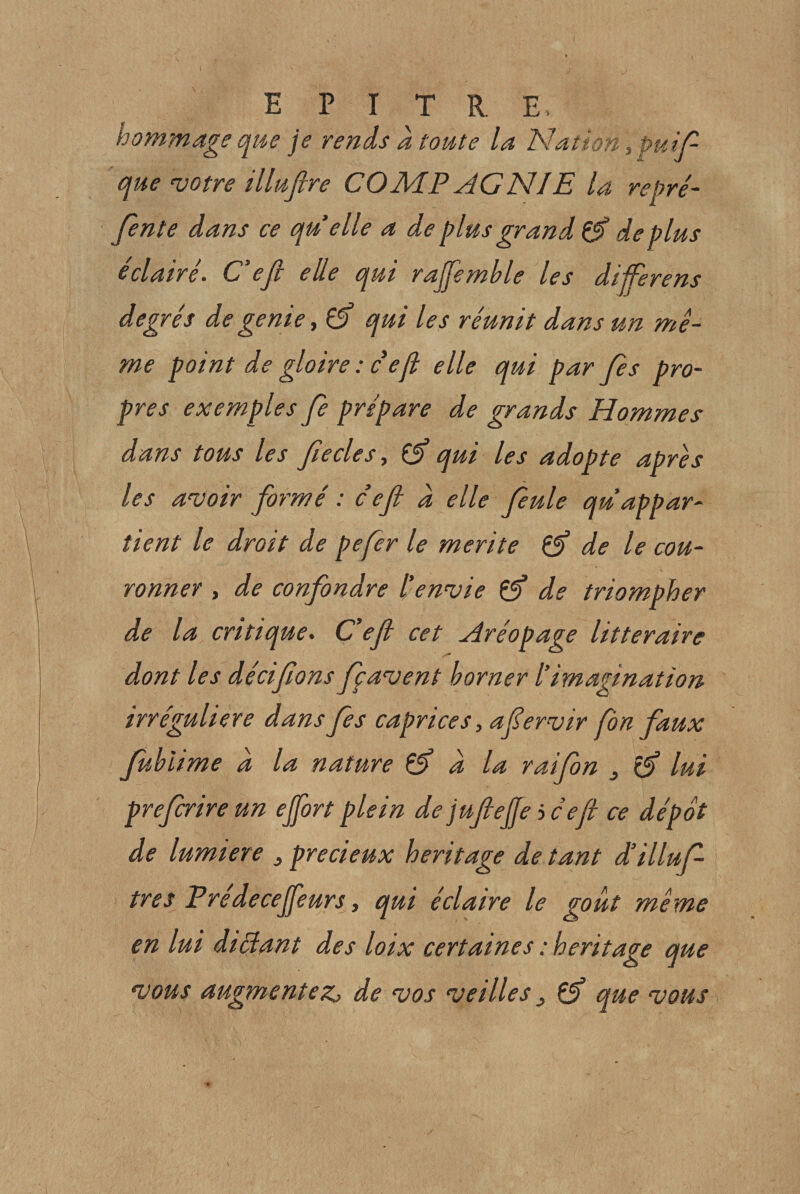 EPITRE.
hommage que je rends à toute la Nation, puiſ-
que votre illuſtre COMPAGNIE la repré-
ſente dans ce qu'elle a de plus grand & de plus
éclairé. C'eſt elle qui raſſemble les differens
degrés de genie, & qui les réunit dans un mê-
me point de gloire : c'eſt elle qui par ſes pro-
pres exemples ſe prépare de grands Hommes
dans tous les ſiecles, & qui les adopte après
les avoir formé : c'eſt à elle ſeule qu'appar-
tient le droit de peſer le merite & de le cou-
ronner, de confondre l'envie & de triompher
de la critique. C'eſt cet Aréopage litteraire
dont les déciſions ſçavent borner l'imagination
irréguliere dans ſes caprices, aſſervir ſon faux
ſublime à la nature & à la raiſon, & lui
preſcrire un effort plein de juſteſſe ; c'eſt ce dépôt
de lumiere, precieux heritage de tant d'illuſ-
tres Prédeceſſeurs, qui éclaire le goût même
en lui dictant des loix certaines : heritage que
vous augmentez de vos veilles, & que vous